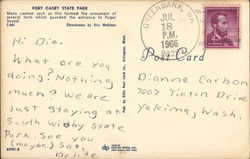 FORT CASEY STATE PARK
Many cannon such as this formed the armament of
several forts which guarded the entrance to Puget
Sound.
Ektachrome by Eric
C-661
GREENBANK, WA.
JUL
18
P.M.
1966
Hi Dia.
What are you
doing? Nothing
much? We are
just staying at
South Widby State
Park. See you
(maybe) Sat.
Post Card
Dianne Carbon
7007 Tieton Drive
Yakima, Wash.
dp